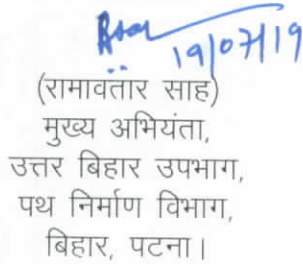 19/07/19
(रामावतार साह)
मुख्य अभियंता,
उत्तर बिहार उपभाग,
पथ निर्माण विभाग,
बिहार, पटना।